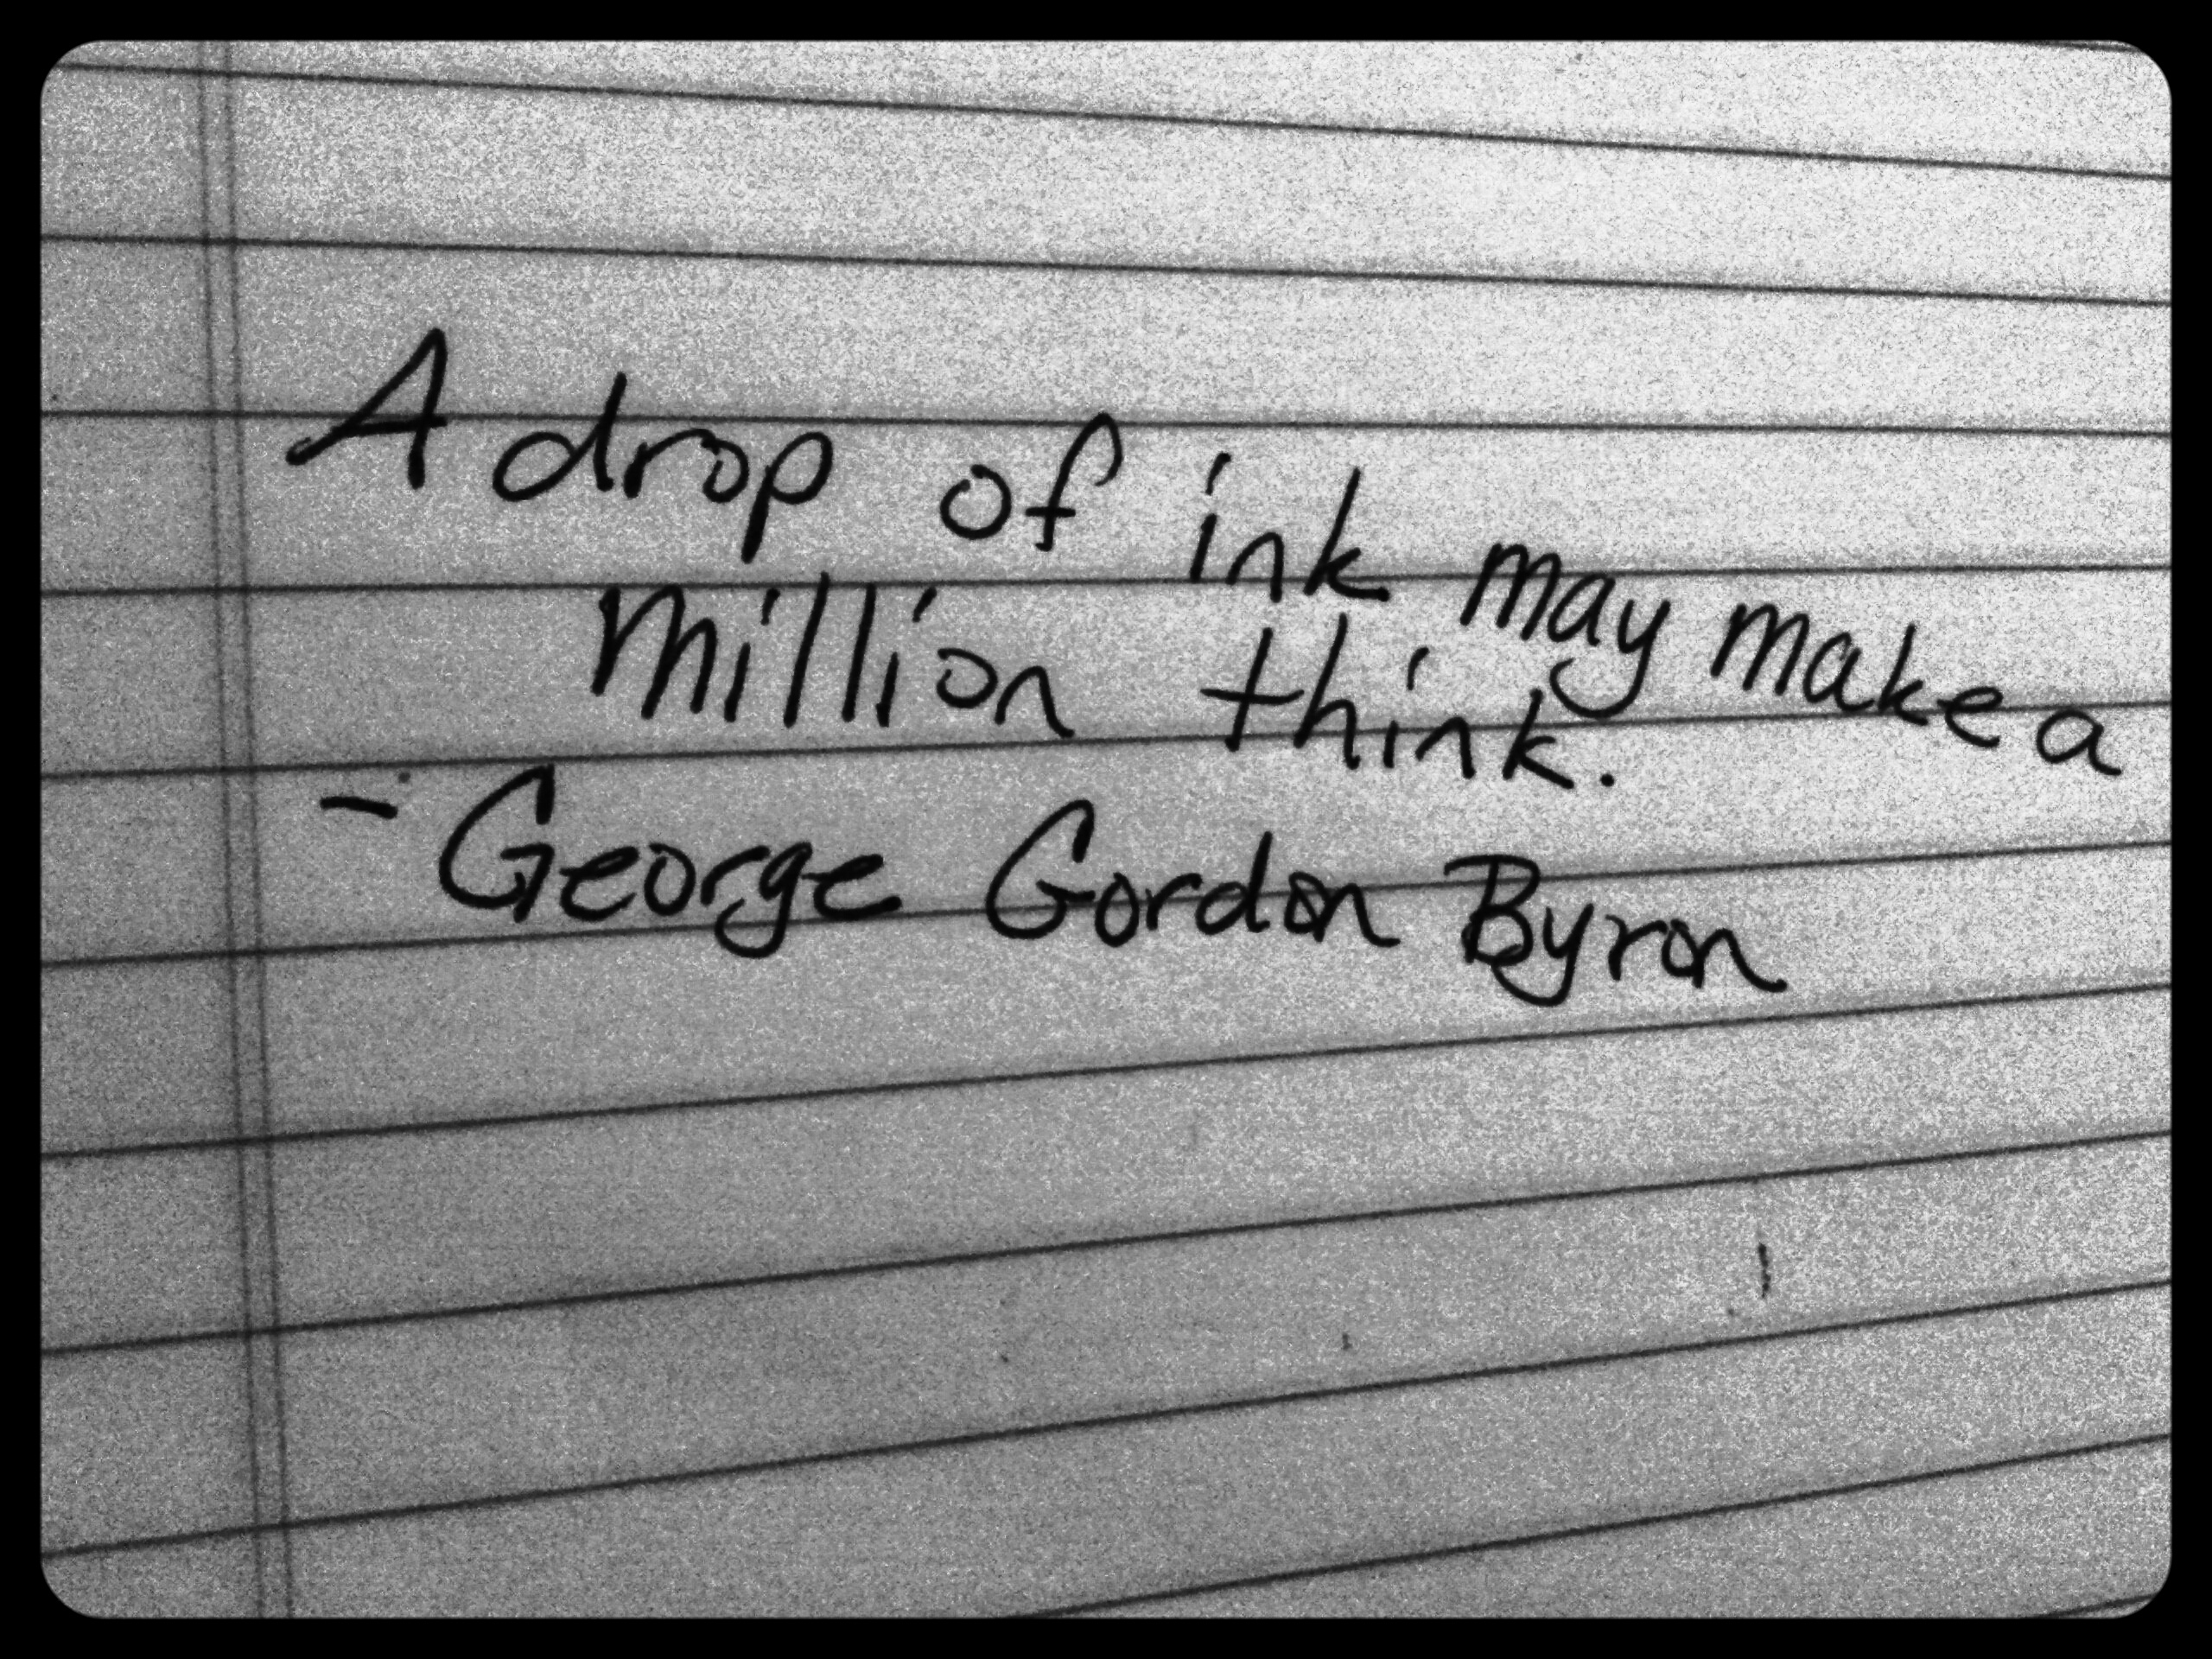 A drop of ink may make a
million think.
- George Gordon Byron